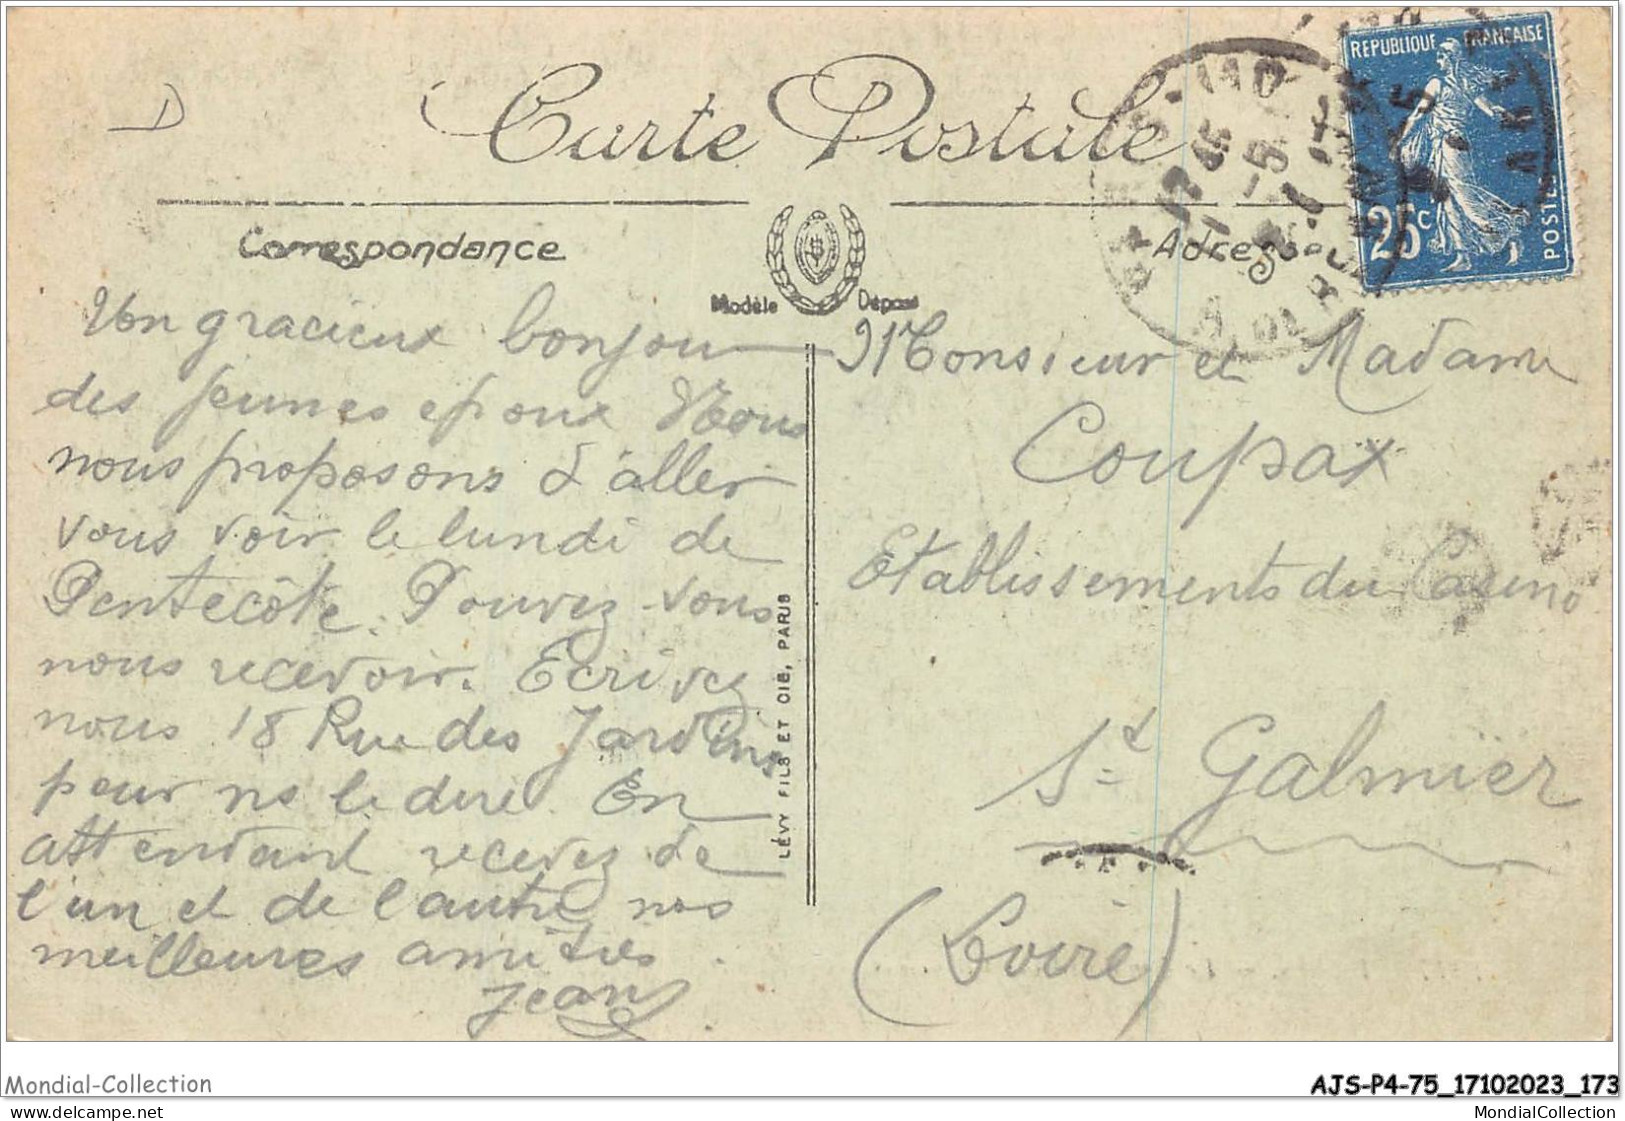 D
Carte Postale
Correspondance
Modèle Déposé
Adresse
REPUBLIQUE FRANÇAISE
25c
POSTES
Un gracieux bonjour
des jeunes epoux Nous
nous proposons d'aller
vous voir le lundi de
Pentecôte. Pouvez-vous
nous recevoir. Ecrivez
nous 18 Rue des Jardins
pour ns le dire. En
attendant recevez de
l'un et de l'autre nos
meilleures amitiés.
Jean
LÉVY FILS ET CIE, PARIS
Monsieur et Madame
Coupat
Etablissements du Casino
St Galmier
(Loire)
Mondial-Collection
AJS-P4-75_17102023_173
delcampe.net
MondialCollection